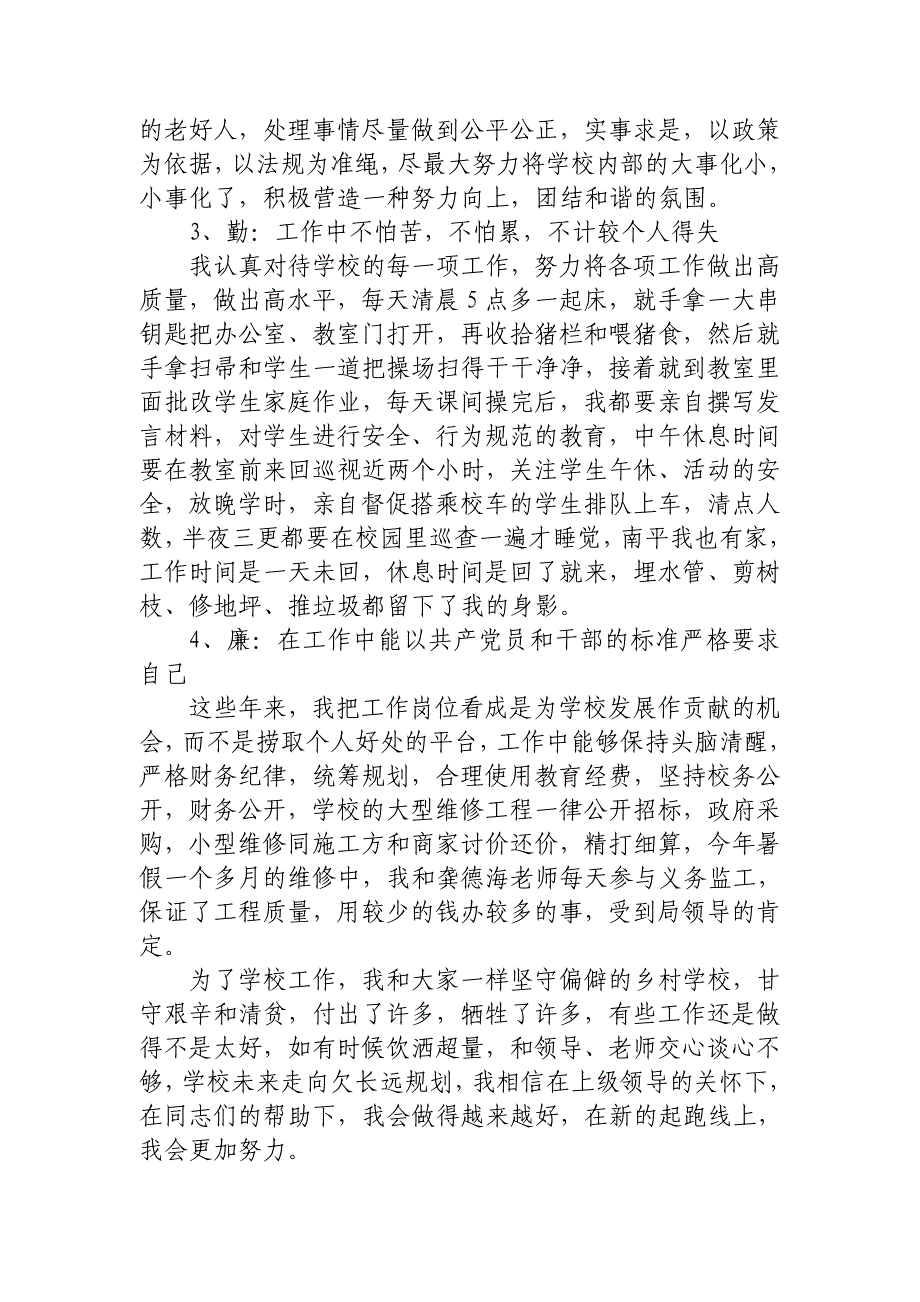 的老好人，处理事情尽量做到公平公正，实事求是，以政策
为依据，以法规为准绳，尽最大努力将学校内部的大事化小，
小事化了，积极营造一种努力向上，团结和谐的氛围。
3、勤：工作中不怕苦，不怕累，不计较个人得失
我认真对待学校的每一项工作，努力将各项工作做出高
质量，做出高水平，每天清晨 5 点多一起床，就手拿一大串
钥匙把办公室、教室门打开，再收拾猪栏和喂猪食，然后就
手拿扫帚和学生一道把操场扫得干干净净，接着就到教室里
面批改学生家庭作业，每天课间操完后，我都要亲自撰写发
言材料，对学生进行安全、行为规范的教育，中午休息时间
要在教室前来回巡视近两个小时，关注学生午休、活动的安
全，放晚学时，亲自督促搭乘校车的学生排队上车，清点人
数，半夜三更都要在校园里巡查一遍才睡觉，南平我也有家，
工作时间是一天未回，休息时间是回了就来，埋水管、剪树
枝、修地坪、推垃圾都留下了我的身影。
4、廉：在工作中能以共产党员和干部的标准严格要求
自己
这些年来，我把工作岗位看成是为学校发展作贡献的机
会，而不是捞取个人好处的平台，工作中能够保持头脑清醒，
严格财务纪律，统筹规划，合理使用教育经费，坚持校务公
开，财务公开，学校的大型维修工程一律公开招标，政府采
购，小型维修同施工方和商家讨价还价，精打细算，今年暑
假一个多月的维修中，我和龚德海老师每天参与义务监工，
保证了工程质量，用较少的钱办较多的事，受到局领导的肯
定。
为了学校工作，我和大家一样坚守偏僻的乡村学校，甘
守艰辛和清贫，付出了许多，牺牲了许多，有些工作还是做
得不是太好，如有时候饮洒超量，和领导、老师交心谈心不
够，学校未来走向欠长远规划，我相信在上级领导的关怀下，
在同志们的帮助下，我会做得越来越好，在新的起跑线上，
我会更加努力。